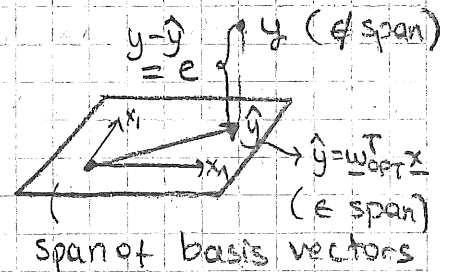 y-ŷ
= e
y (∉ span)
x₁
ŷ
xₙ
ŷ=w^T_OPT x
(∈ span)
span of basis vectors